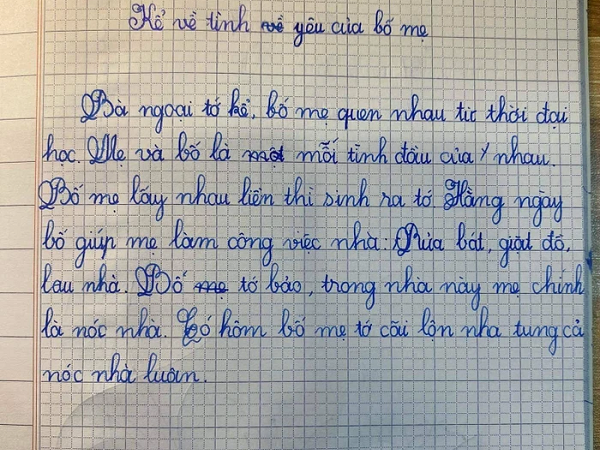 Kể về tình yêu của bố mẹ
Bà ngoại tớ kể, bố mẹ quen nhau từ thời đại
học. Mẹ và bố là mối tình đầu của nhau.
Bố mẹ lấy nhau liền thì sinh ra tớ. Hằng ngày
bố giúp mẹ làm công việc nhà: Rửa bát, giặt đồ,
lau nhà. Bố tớ bảo, trong nhà này mẹ chính
là nóc nhà. Có hôm bố mẹ tớ cãi lộn nha tung cả
nóc nhà luân.